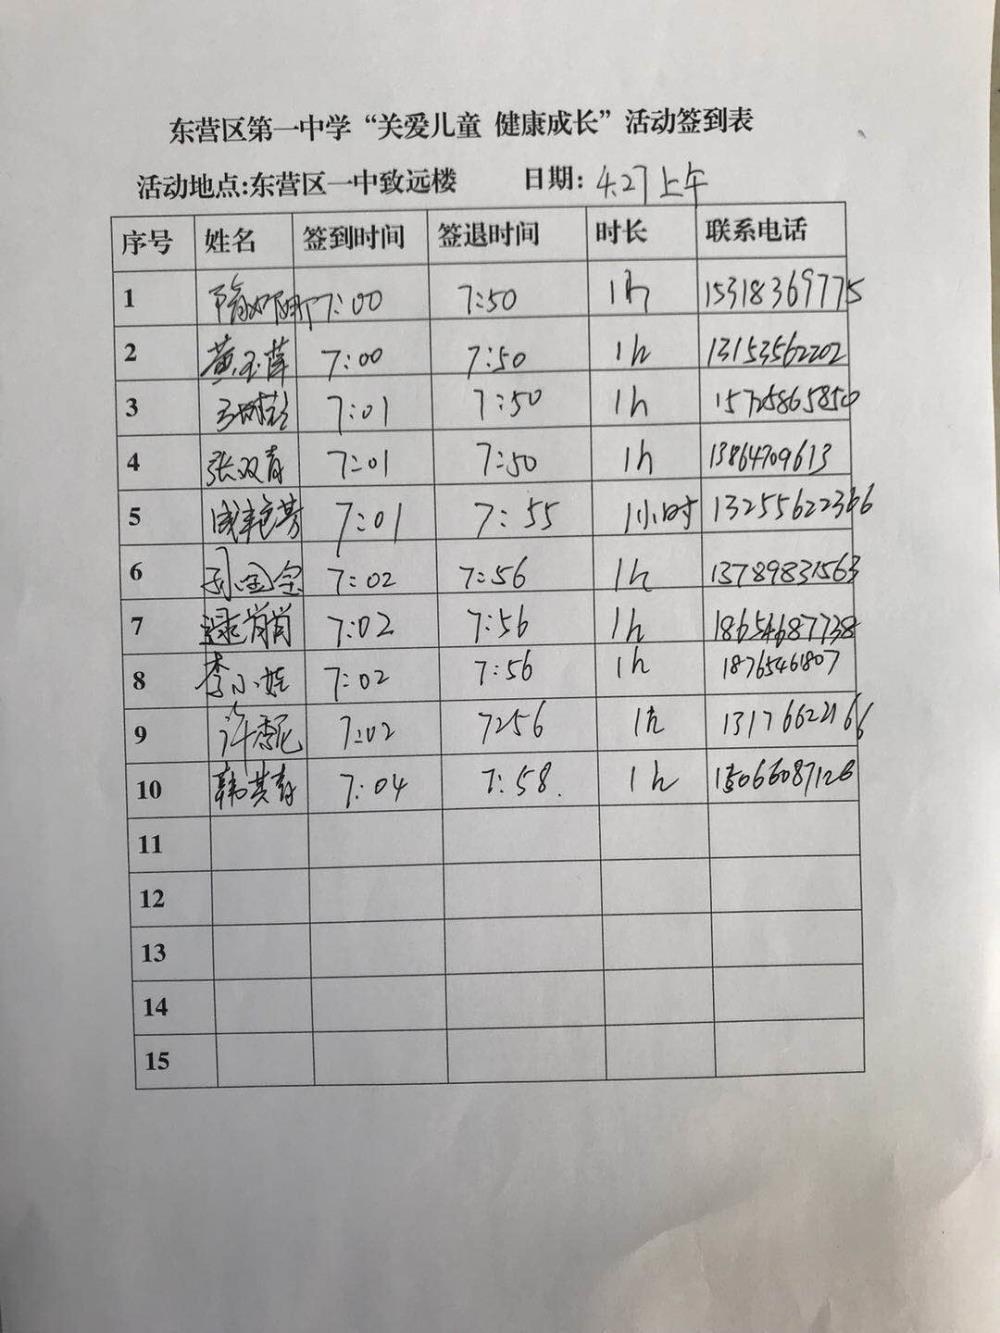 东营区第一中学“关爱儿童 健康成长”活动签到表
活动地点:东营区一中致远楼 日期: 4.27上午
序号 姓名 签到时间 签退时间 时长 联系电话
1 7:00 7:50 1h 15318369775
2 黄玉萍 7:00 7:50 1h 13153562202
3 7:01 7:50 1h 15725865850
4 张双青 7:01 7:50 1h 13864709613
5 7:01 7:55 1小时 13255622366
6 孙国宝 7:02 7:56 1h 13789831563
7 逯肖肖 7:02 7:56 1h 18654687738
8 李小娃 7:02 7:56 1h 18765461807
9 许 7:02 7:56 1h 13176622166
10 韩其春 7:04 7:58. 1h 15066087126
11
12
13
14
15